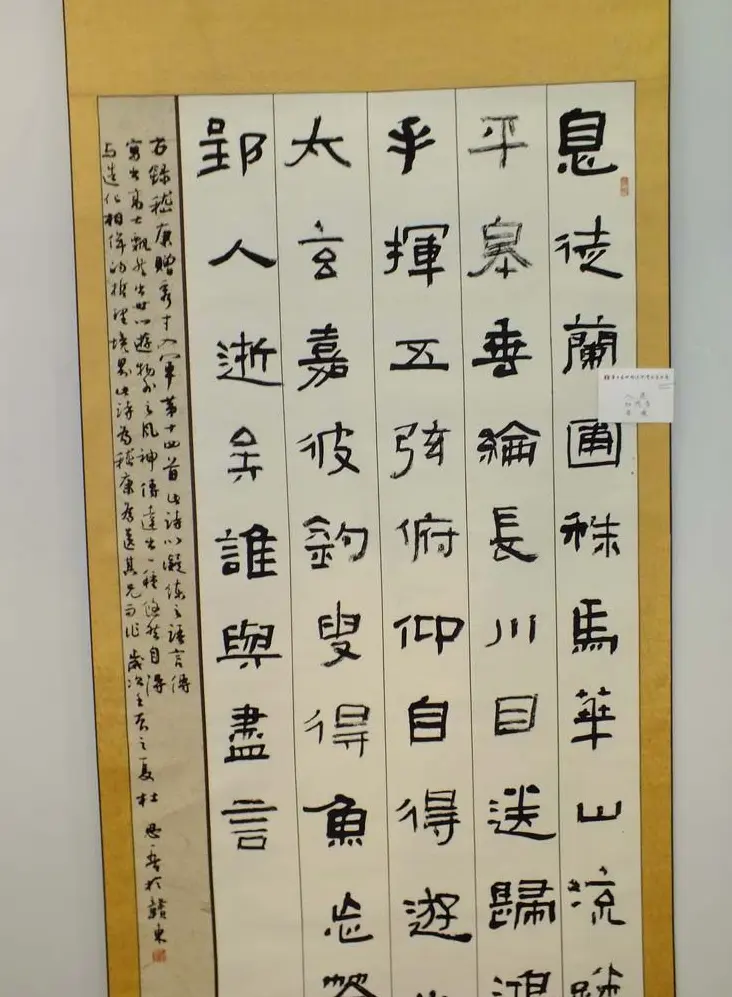 息徒蘭圃秣馬華山流
平皋垂綸長川目送歸鴻
手揮五弦俯仰自得遊
太玄嘉彼釣叟得魚忘
郢人逝矣誰與盡言
右錄嵇康贈秀才入軍第十四首此詩以凝練之語言傳
寫出高士飄然出世心遊物外之風神傳達出一種悠然自得
与造化相侔的哲理境界此詩為嵇康為送其兄而作歲次壬辰之夏杜思於贛東